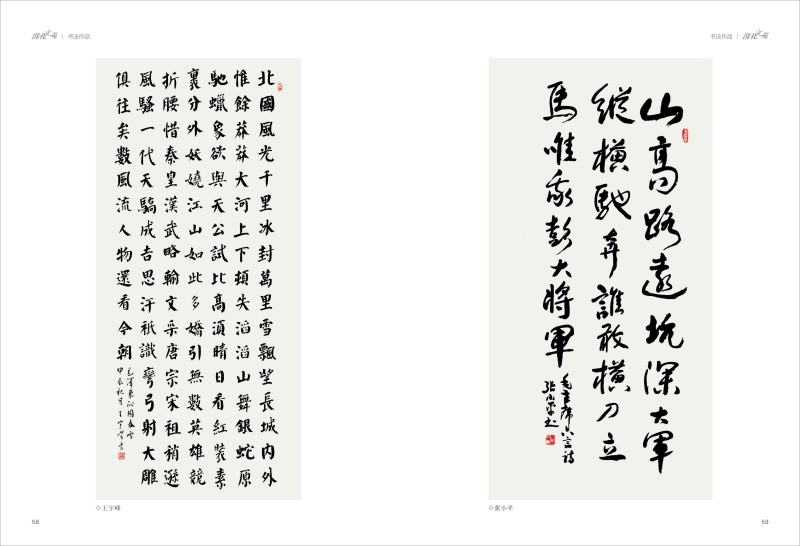 书法作品
书法作品
北國風光千里冰封萬里雪飄望長城內外
惟餘莽莽大河上下頓失滔滔山舞銀蛇原
馳蠟象欲與天公試比高須晴日看紅裝素
裹分外妖嬈江山如此多嬌引無數英雄競
折腰惜秦皇漢武略輸文采唐宗宋祖稍遜
風騷一代天驕成吉思汗祇識彎弓射大雕
俱往矣數風流人物還看今朝
毛澤東沁園春雪
甲辰秋月王宇峰書
◇王宇峰
58
山高路遠坑深大軍
縱橫馳奔誰敢橫刀立
馬唯我彭大將軍
毛主席六言詩
張小平書
◇张小平
59